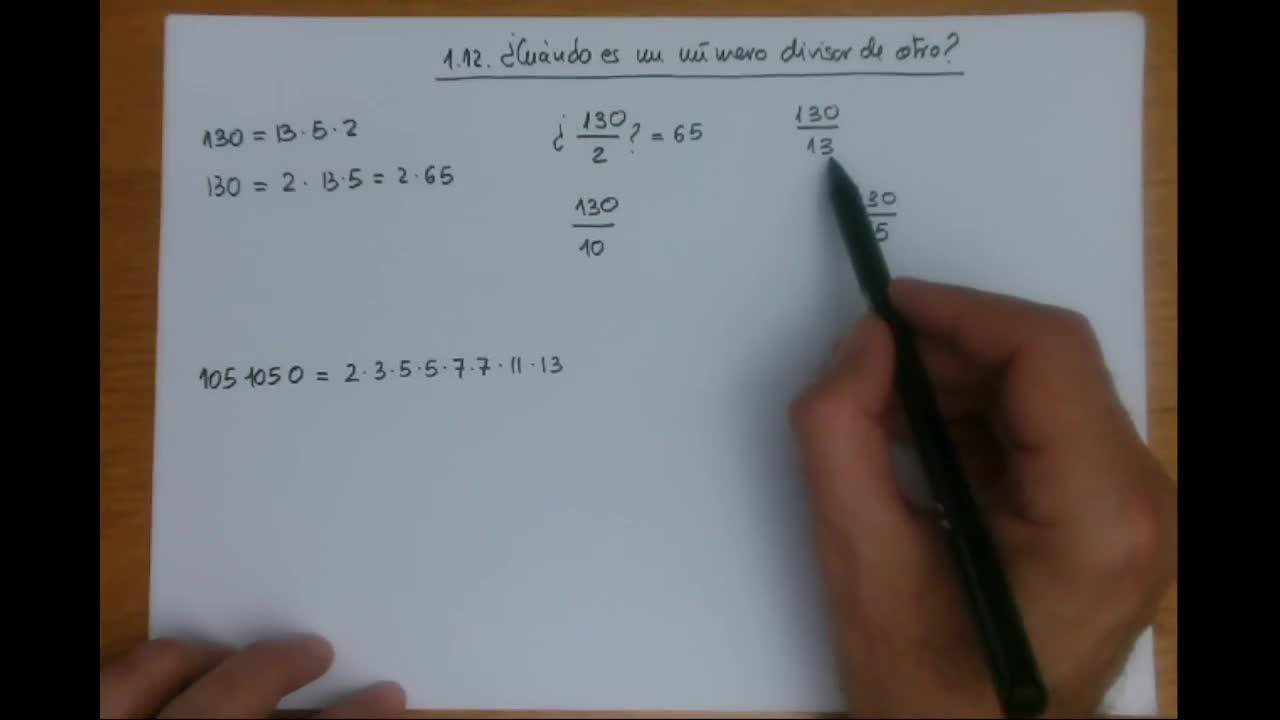 1.12. ¿Cuándo es un número divisor de otro?
130 = 13·5·2
130 = 2 · 13·5 = 2·65
¿ 130/2 ? = 65
130/10
130/13
30/5
1051050 = 2·3·5·5·7·7·11·13